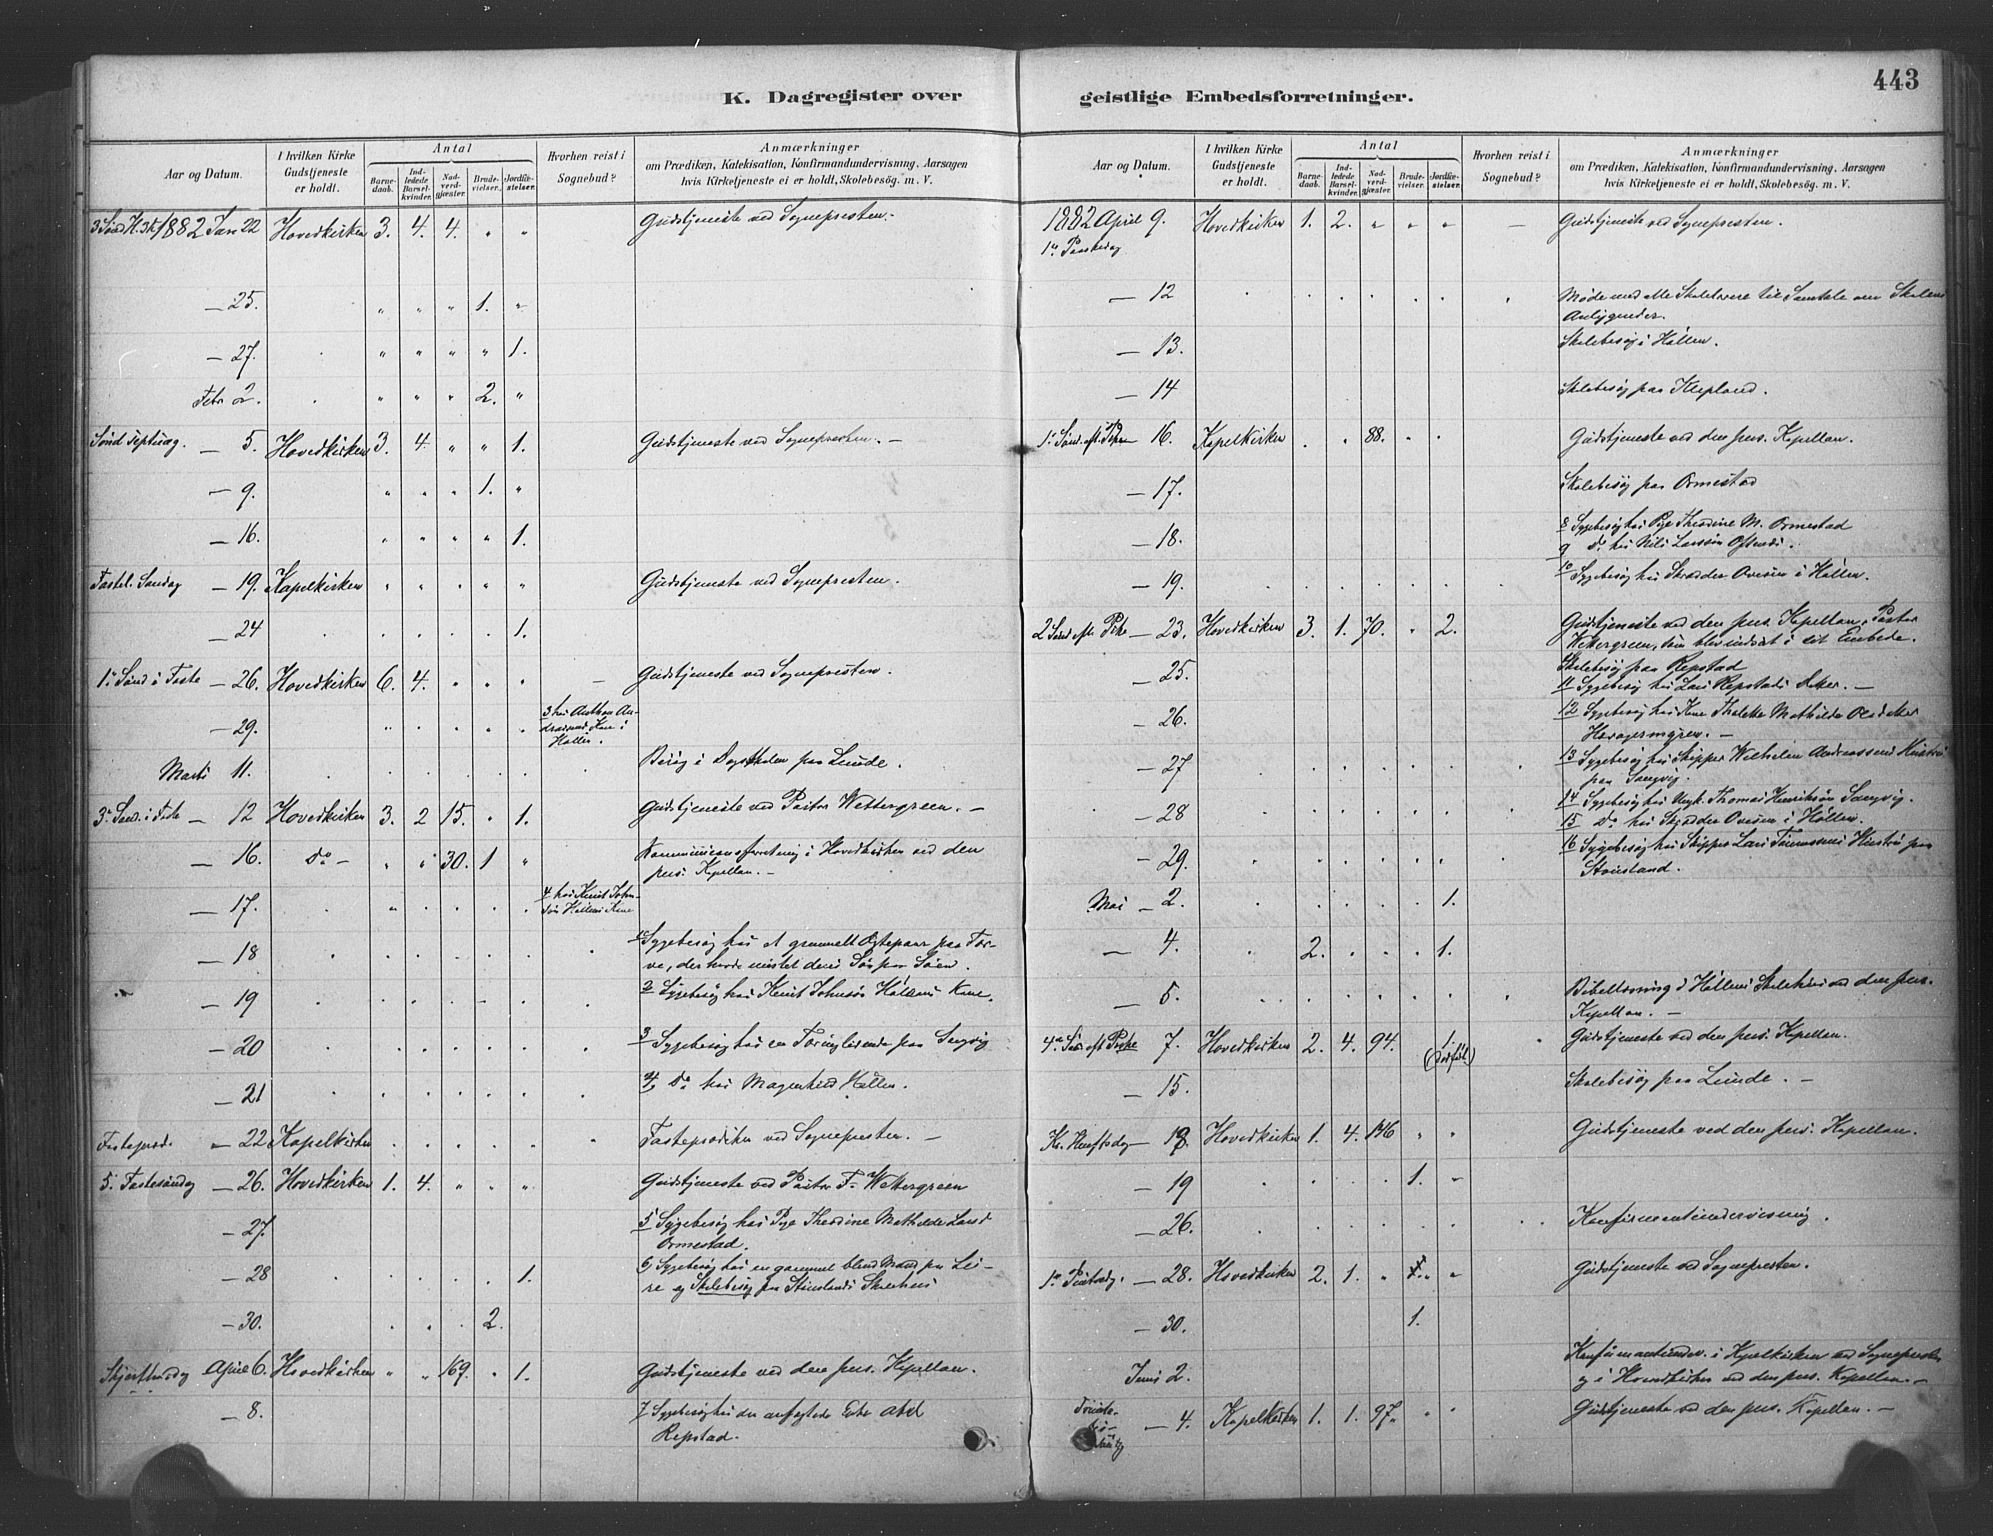 443
K. Dagregister over geistlige Embedsforretninger.
Aar og Datum.
I hvilken Kirke Gudstjeneste er holdt.
Antal
Barne-daab.
Ind-ledede Barsel-kvinder.
Nad-verd-gjæster.
Brude-vielser.
Jordfæ-stelser.
Hvorhen reist i Sognebud?
Anmærkninger
om Prædiken, Katekisation, Konfirmandundervisning, Aarsagen
hvis Kirketjeneste ei er holdt, Skolebesög. m. V.
1882 Jan 22 Hovedkirken 3. 4. 4. " " Gudstjeneste ved Sognepresten.
— 25. " " " 1. "
— 27. " " " " 1.
Febr 2. " " " 2. "
Sönd Septuag. — 5. Hovedkirken 3. 4 " " 1. Gudstjeneste ved Sognepresten. —
— 9. " " " 1. "
— 16. " " " " 1.
Fastel. Sondag — 19. Kapelkirken " " " " " Gudstjeneste ved Sognepresten.
— 24 1.
1ste Sönd i Faste — 26. Hovedkirken 6. 4. " " " Gudstjeneste ved Sognepresten.
— 29. 3 hos Anthon An-
Kone i
Marts 11. paa Lunde.
12 Hovedkirken 3. 2 15. " 1. Gudstjeneste ved Pastor Wettergreen. —
— 16. Do — " " 30. 1 " i Hovedkirken ved den
pers. Kapellan. —
— 17. 4 hos Knut John-
sön Höllens Kone
— 18 1 Sygebesög hos et gammelt Ægtepar paa
— 19 2 Sygebesög hos Knut Johnsön Höllens Kone.
— 20 3 Sygebesög hos en paa Langvig
— 21 4 Do hos
— 22 Kapelkirken Fasteprædiken ved Sognepresten. —
5. Fastesöndag — 26. Hovedkirken 1. 4. " " " Gudstjeneste ved Pastor F. Wettergreen
— 27. 5 Sygebesög hos Pige Theodine Mathilde
Ormestad.
— 28 1. 6 Sygebesög hos en gammel blind Mand paa Lei-
re og Skolebesög paa Stensland
— 30. 2.
Skjærthorsdag April 6. Hovedkirken " " 169. " 1. Gudstjeneste ved den pers. Kapellan.
— 8. 7 Sygebesög hos den
Repstad.
Aar og Datum.
I hvilken Kirke Gudstjeneste er holdt.
Antal
Barne-daab.
Ind-ledede Barsel-kvinder.
Nad-verd-gjæster.
Brude-vielser.
Jordfæ-stelser.
Hvorhen reist i Sognebud?
Anmærkninger
om Prædiken, Katekisation, Konfirmandundervisning, Aarsagen
hvis Kirketjeneste ei er holdt, Skolebesög. m. V.
1882 April 9. Hovedkirken 1. 2. " " " — Gudstjeneste ved Sognepresten.
1ste Paaskedag
— 12 Möde med alle Skolelærere til Samtale om Skolens
Anliggender.
— 13. Skolebesög i Höllen.
— 14 Skolebesög paa Klepland.
16. Kapelkirken 88. Gudstjeneste ved den pers. Kapellan.
— 17. Skolebesög paa Ormestad
— 18. 8 Sygebesög hos Pige Theodine M. Ormestad
9 Do hos Nils Larssön
— 19. 10 Sygebesög hos Skrædder Ovesen i Höllen.
— 23. Hovedkirken 3. 1. 70. " 2. Gudstjeneste ved den pers. Kapellan, Pastor
Wettergreen, som blev indsat i sit Embede.
— 25. Skolebesög paa Repstad
11 Sygebesög hos Lars Repstads
— 26. 12 Sygebesög hos Kone Mathilde
— 27 13 Sygebesög hos Skipper Wilhelm Andreassens Hustru
paa Langvig.
— 28 14 Sygebesög hos Ungk. Thomas Henriksön Langvig.
15 Do hos Skrædder Ovesen i Höllen.
— 29. 16 Sygebesög hos Skipper Lars Hustru paa
Mai — 2. 1.
— 4. 2. 1.
— 5. Bibellæsning i Höllens Skolehus ved den pers.
Kapellan. —
4de Sönd eft Paaske 7. Hovedkirken 2. 4. 94. 1. Gudstjeneste ved den pers. Kapellan.
(dödfödt)
— 15. Skolebesög paa Lunde. —
Kr. Himfsdag — 18. Hovedkirken 1. 4. 146 " " Gudstjeneste ved den pers. Kapellan.
— 19 1. "
— 26. Konfirmantundervisning.
1ste Pintsedg. — 28. Hovedkirken 2. 1. " " " Gudstjeneste ved Sognepresten.
— 30. 1.
Juni 2. Konfirmantunderv. i Kapelkirken ved Sognepresten
og i Hovedkirken ved den pers. Kapellan. —
— 4. Kapelkirken 1. 1. 97. " " Gudstjeneste ved den pers. Kapellan. —